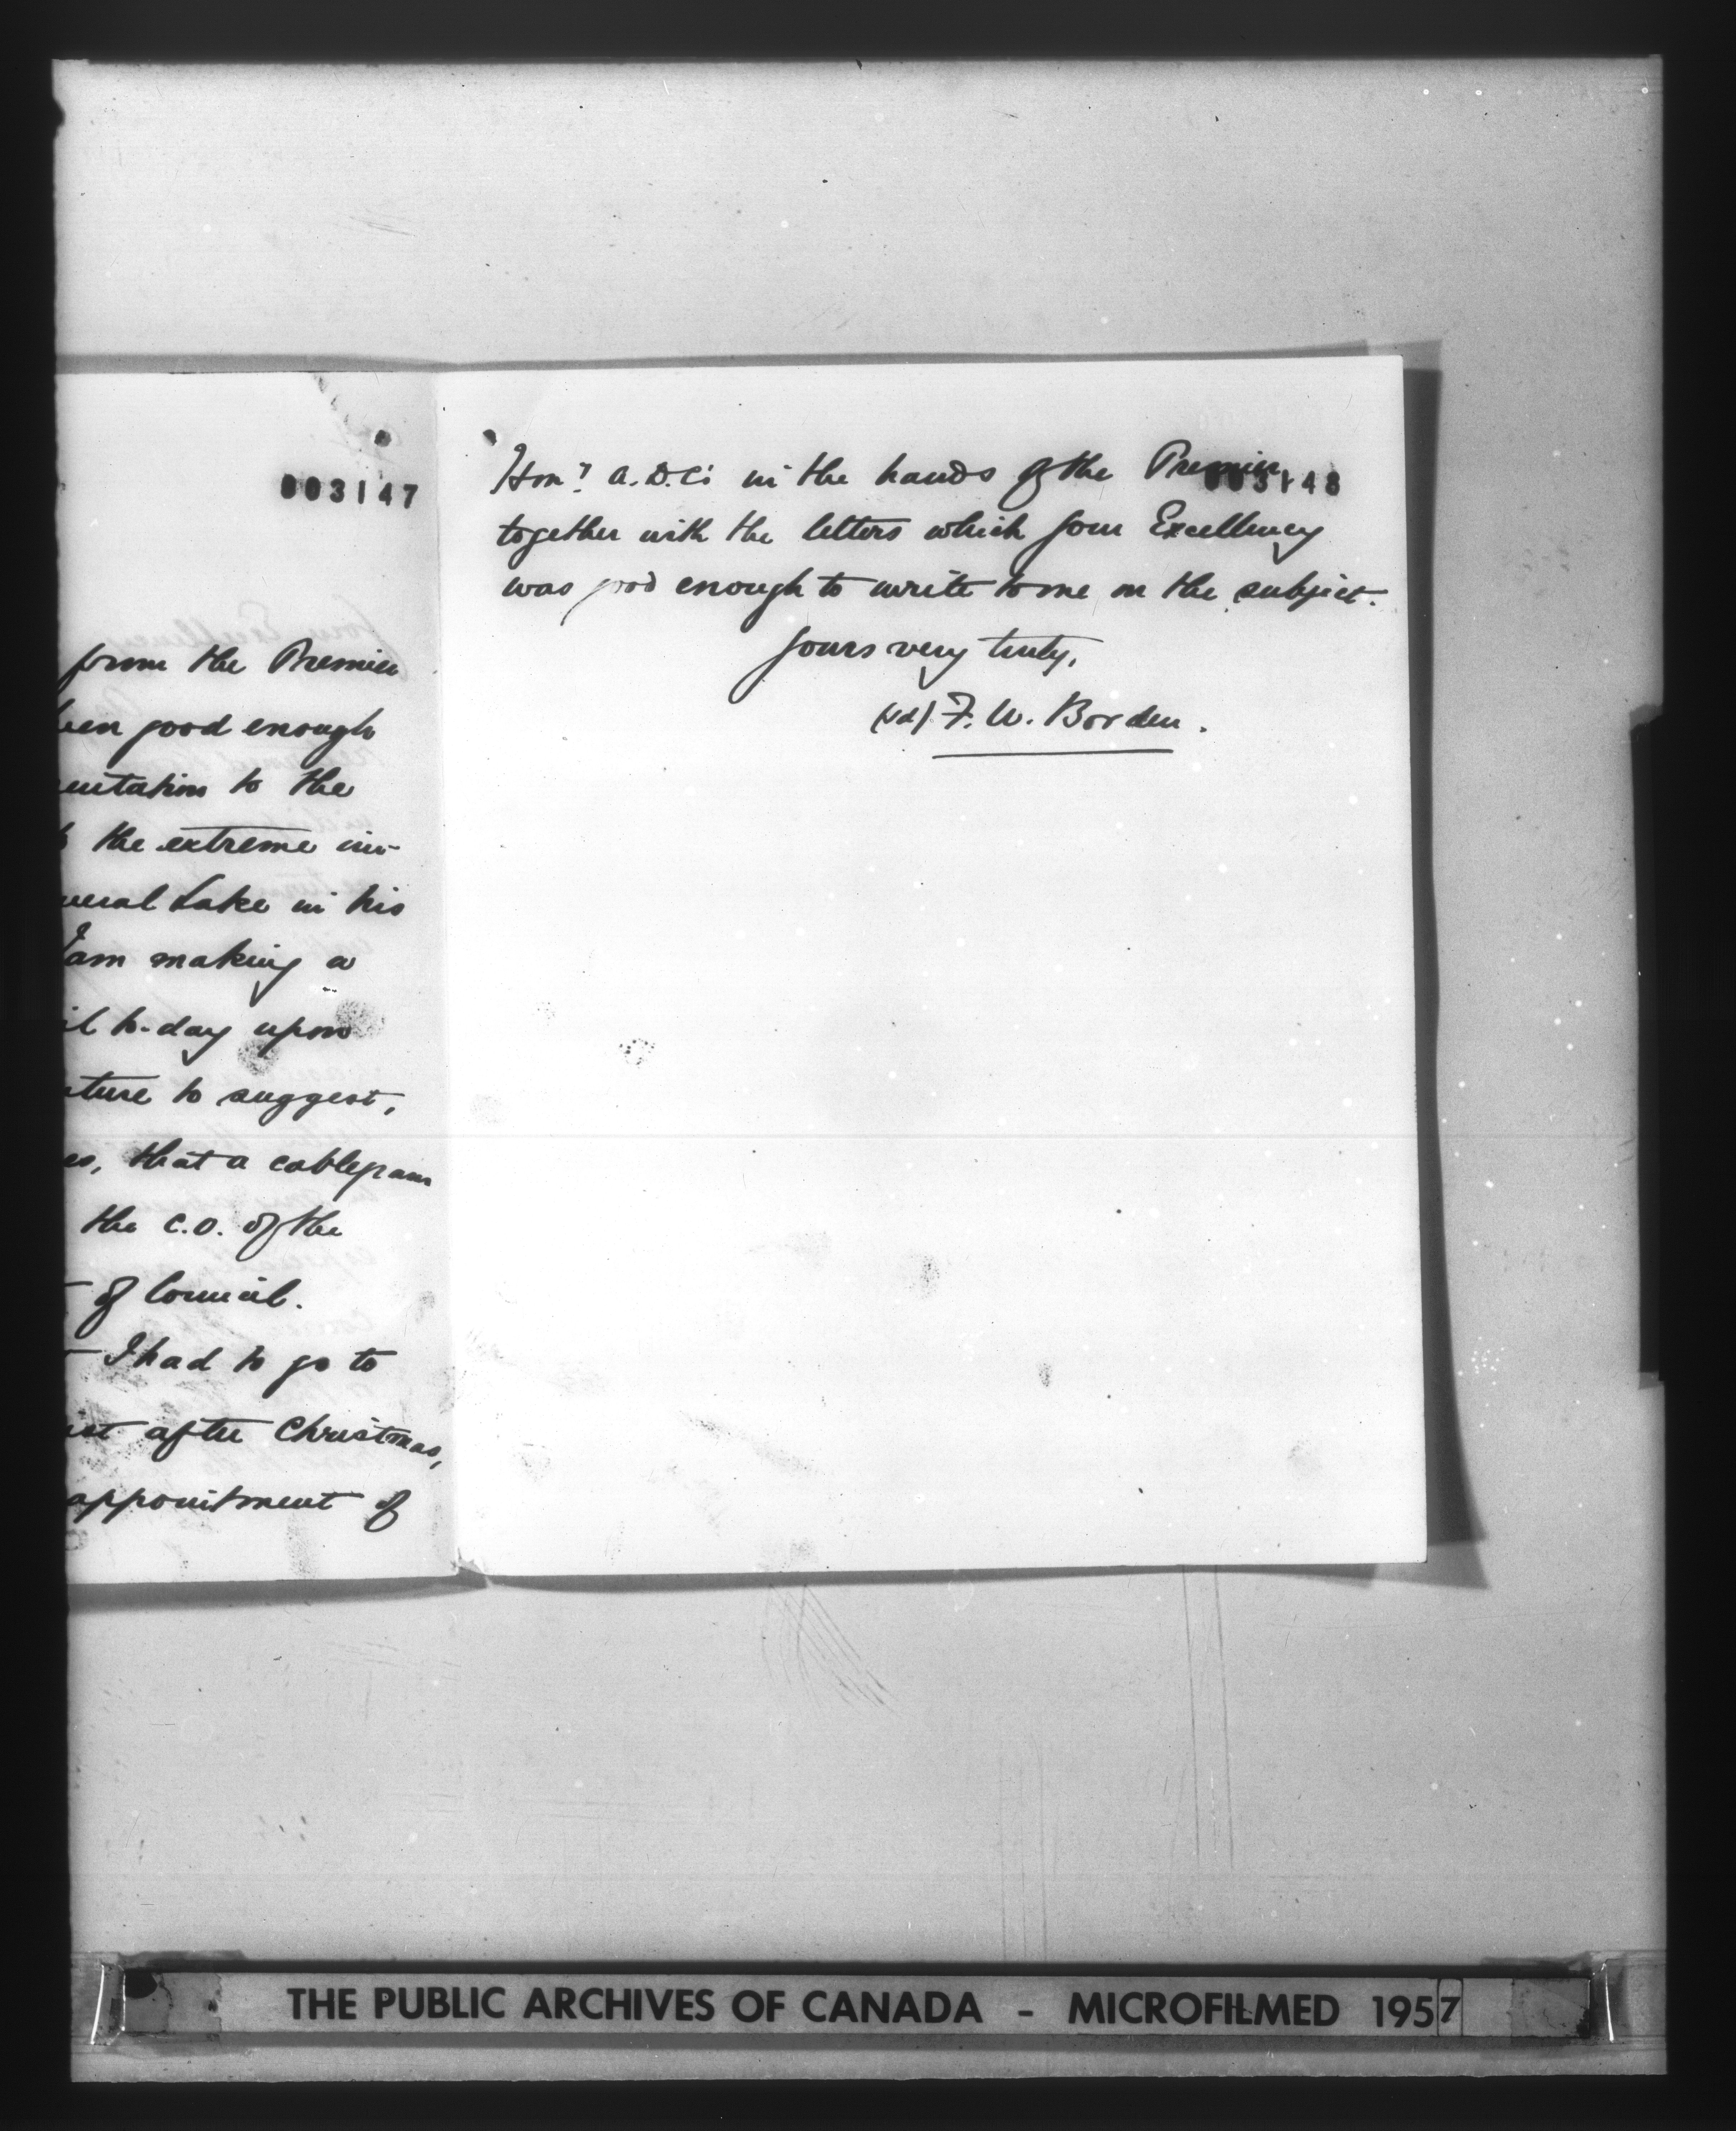 003147
from the Premier
been good enough
entation to the
the extreme im-
neral Lake in his
I am making a
il to-day upon
ture to suggest,
es, that a cablegram
the C.O. of the
of Council.
I had to go to
after Christmas,
appointment of
003148
Hon? A.D.C's in the hands of the Premier
together with the letters which your Excellency
was good enough to write to me on the subject.
Yours very truly,
(sd) F. W. Borden.
THE PUBLIC ARCHIVES OF CANADA - MICROFILMED 1957